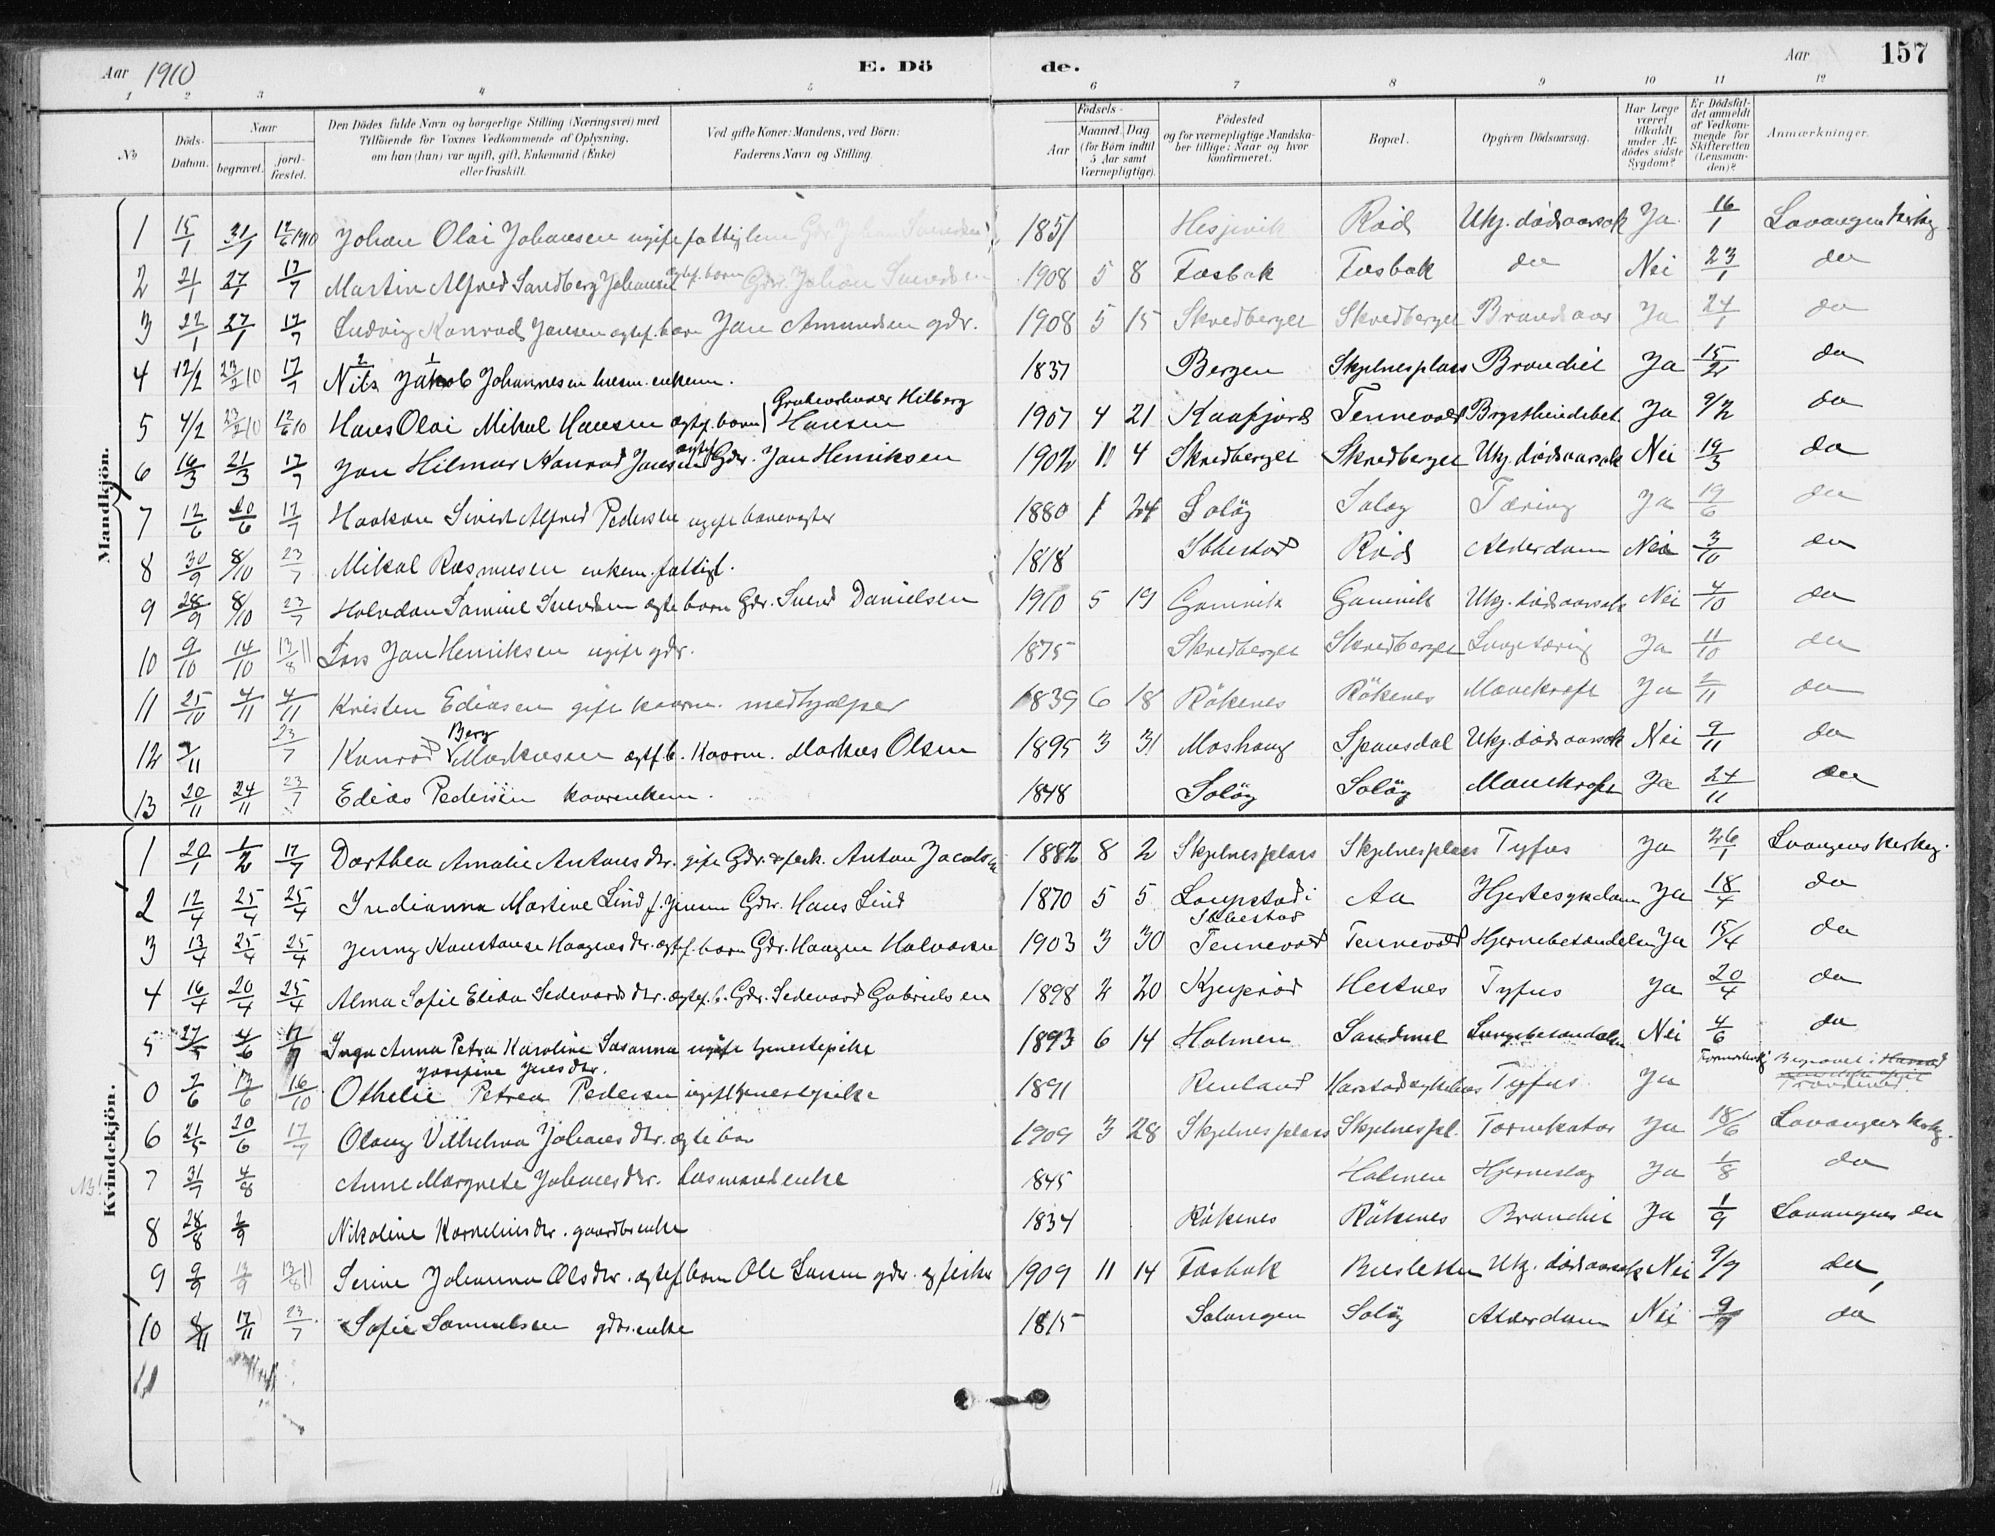 Aar 1910 E. Döde. Aar 157
1 2 3 4 5 6 7 8 9 10 11 12
No. Döds-Datum. Naar begravet. jord-fæstet. Den Dödes fulde Navn og borgerlige Stilling (Næringsvei) med Tilföiende for Voxnes Vedkommende af Oplysning, om han (hun) var ugift, gift, Enkemand (Enke) eller fraskilt. Ved gifte Koner: Mandens, ved Börn: Faderens Navn og Stilling. Födsels- Aar Maaned. Dag. (for Börn indtil 5 Aar samt Værnepligtige). Födested og for værnepligtige Mandskaber tillige: Naar og hvor konfirmeret. Bopæl. Opgiven Dödsaarsag. Har Læge været tilkaldt under Afdödes sidste Sygdom? Er Dödsfaldet anmeldt af Vedkommende for Skifteretten (Lensmanden)? Anmærkninger.
Mandkjön.
1 15/1 31/1 12/6 1910 Johan Olai Johansen ugift fattiglem 1851 Hesjevik Röd Ukj. dödsaarsak Ja 16/1 Lavangen kirkeg.
2 21/1 27/1 17/7 Martin Alfred Sandberg Johansen egtef. barn Gdr. Johan Svendsen 1908 5 8 Fosbak Fosbak do Nei 23/1 do
3 22/1 27/1 17/7 Ludvig Konrad Jansen egtef. barn Jan Amundsen gdr. 1908 5 15 Skredberget Skredberget Brandsaar Ja 24/1 do
4 12/2 23/2 10 17/7 Nils Jakob Johannesen husm. enkem. 1837 Bergen Skjelnesplass Bronchit Ja 15/2 do
5 4/2 23/2 10 12/6 10 Hans Olai Mikal Hansen egtef. barn Hilberg Hansen 1907 4 21 Kaafjord Tennevold Brysthindebet. Ja 9/2 do
6 16/3 21/3 17/7 Jan Hilmar Konrad Jansen egtef. Gdr. Jan Henriksen 1902 11 4 Skredberget Skredberget Ukj. dödsaarsak Nei 19/3 do
7 12/6 20/6 17/7 Haakon Sivert Alfred Pedersen ugift 1880 1 24 Soløy Soløy Tæring Ja 19/6 do
8 30/9 8/10 23/7 Mikal Rasmusen enkem. fattigl. 1818 Ibbestad Röd Alderdom Nei 3/10 do
9 28/9 8/10 23/7 Halvdan Samuel Svendsen egte barn Gdr. Svend Danielsen 1910 5 19 Gamvik Gamvik Ukj. dödsaarsak Nei 4/10 do
10 9/10 14/10 13/8 11 Lars Jan Henriksen ugift gdr. 1875 Skredberget Skredberget Lungetæring Ja 11/10 do
11 25/10 4/11 4/11 Kristen Ediasen gift kaarm. medhjælper 1839 6 18 Rökenes Rökenes Mavekræft Ja 2/11 do
12 7/11 23/7 Konrad Berg Markusen egtf. b. Kaarm. Markus Olsen 1895 3 31 Moshaug Spansdal Ukj. dödsaarsak Nei 9/11 do
13 20/11 24/11 23/7 Edias Pedersen kaarenkem. 1848 Soløy Soløy Mavekræft Ja 24/11 do
Kvindekjön.
1 20/1 1/2 17/7 Dorthea Amalie Antonsdtr. gift Gdr. & fisk. Anton Jacobsen 1882 8 2 Skjelnesplass Skjelnesplass Tyfus Ja 26/1 Lavangens kirkeg.
2 12/4 25/4 25/4 Indianna Martine Lind f. Jensen Gdr. Hans Lind 1870 5 5 Loupstad i Ibbestad Aa Hjertesygdom Ja 18/4 do
3 13/4 25/4 25/4 Jenny Konstanse Haagensdtr. egtef. barn Gdr. Haagen Halvorsen 1903 3 30 Tennevold Tennevold Hjernebetændelse Ja 15/4 do
4 16/4 20/4 25/4 Alma Sofie Elida Sedevardsdtr. egtef. b. Gdr. Sedevard Gabrielsen 1898 2 20 Kjeiprød Hestnes Tyfus Ja 20/4 do
5 27/5 4/6 17/7 Inga Anna Petra Karoline Susanna Josefine Jensdtr. ugift tjenestepike 1893 6 14 Holmen Sandmel Lungebetændelse Nei 4/6 do
0 7/6 13/6 16/10 Othelie Petrea Pedersen ugift tjenestepike 1891 Renland Harstad sykehus Tyfus Ja Begravet i Trondenes
6 21/5 20/6 17/7 Olaug Vilhelma Johansdtr. egte bar 1909 3 28 Skjelnesplass Skjelnespl. Tarmkatar Ja 18/6 Lavangens kirkeg.
NB! 7 31/7 4/8 Anne Margrete Johansdtr. losmandsenke 1845 Holmen Hjerneslag Ja 1/8 do
8 28/8 2/9 Nikoline Korneliusdtr. gaardbr.enke 1834 Rökenes Rökenes Bronchit Ja 1/9 Lavangens do
9 9/9 13/9 13/8 11 Serine Johanna Olsdtr. egtef. barn Ole Larsen gdr. og fisker 1909 11 14 Fosbak Ukj. dödsaarsak Nei 9/9 do
10 8/11 17/11 23/7 Sofie Samuelsen gdbr.enke 1815 Salangen Soløy Alderdom Nei do
11